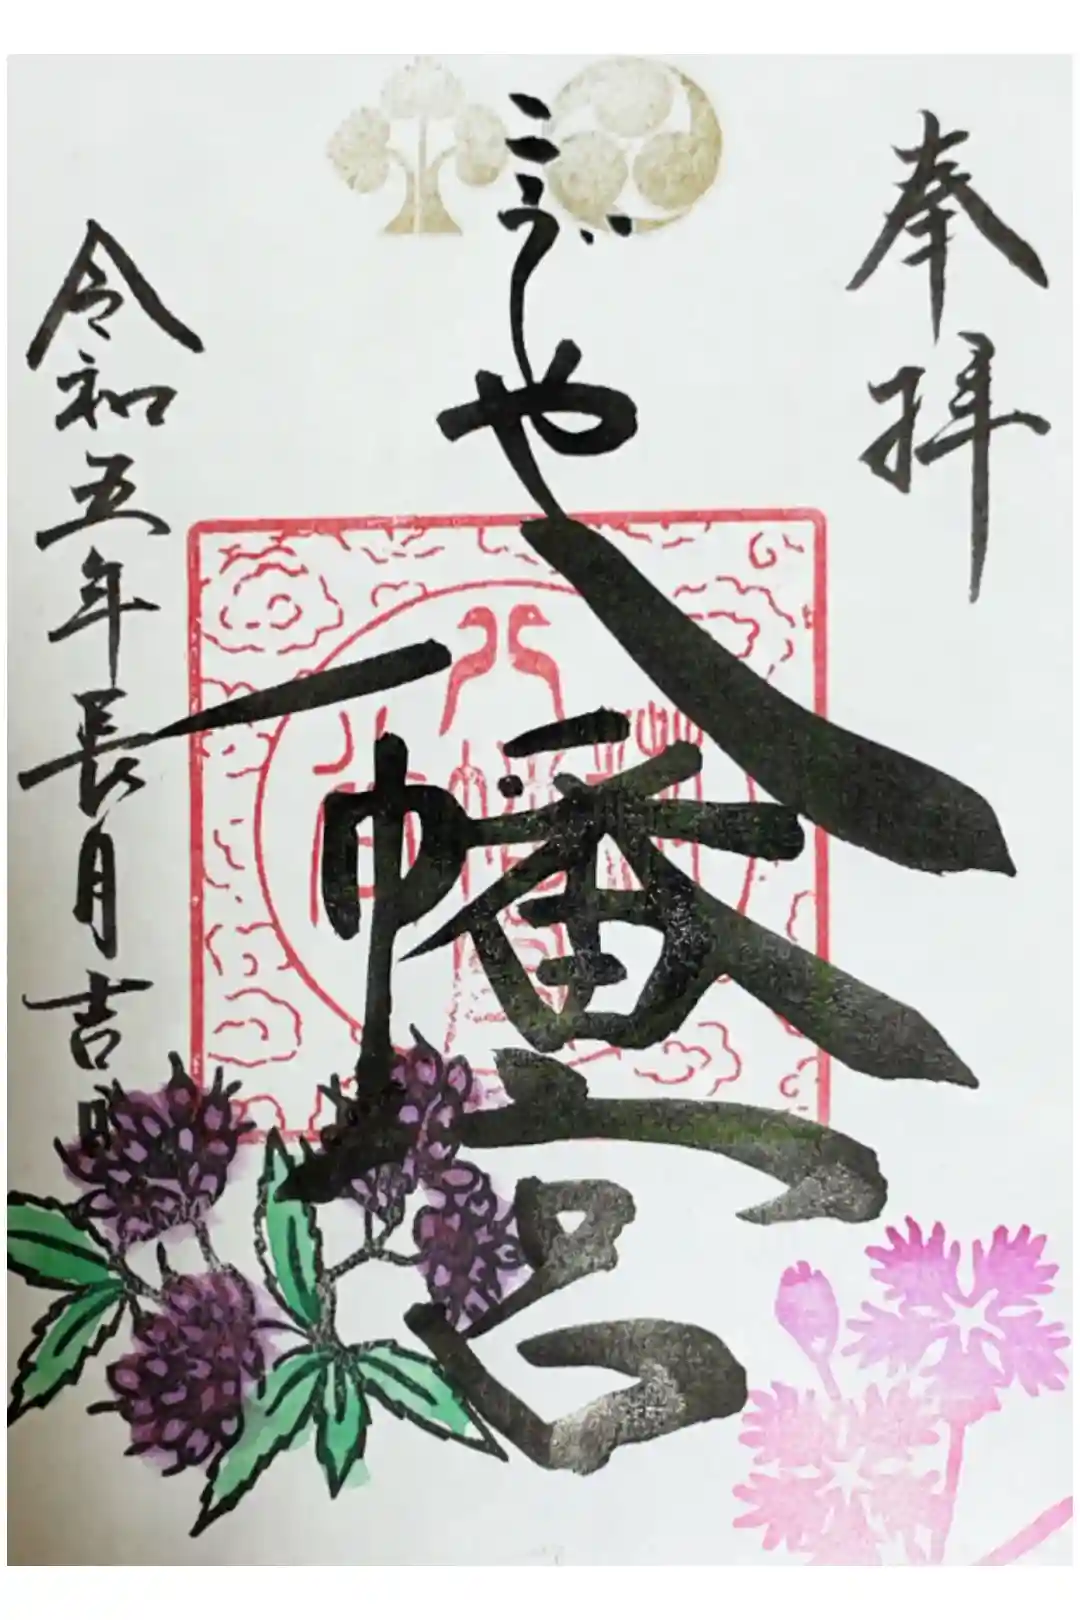 奉拝
こうじや八幡宮
令和五年長月吉日